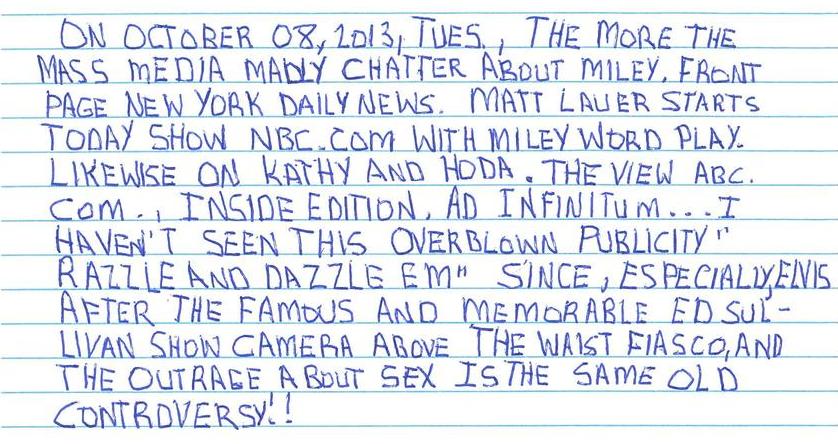 ON OCTOBER 08, 2013, TUES., THE MORE THE
MASS MEDIA MADLY CHATTER ABOUT MILEY. FRONT
PAGE NEW YORK DAILY NEWS. MATT LAUER STARTS
TODAY SHOW NBC.COM WITH MILEY WORD PLAY.
LIKEWISE ON KATHY AND HODA. THE VIEW ABC.
COM., INSIDE EDITION, AD INFINITUM...I
HAVEN'T SEEN THIS OVERBLOWN PUBLICITY "
RAZZLE AND DAZZLE EM" SINCE, ESPECIALLY, ELVIS
AFTER THE FAMOUS AND MEMORABLE ED SUL-
LIVAN SHOW CAMERA ABOVE THE WAIST FIASCO, AND
THE OUTRAGE ABOUT SEX IS THE SAME OLD
CONTROVERSY!!